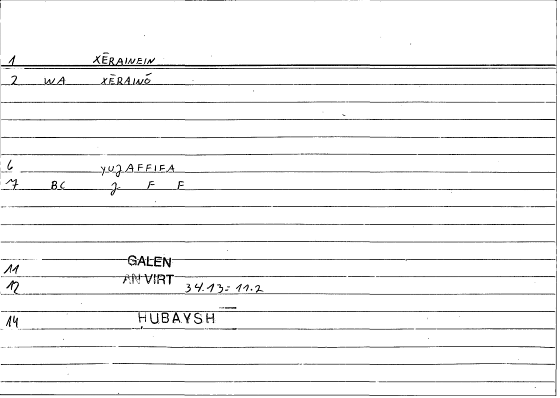 1 XĒRAINEIN
2 WA XĒRAINŌ
6 yuJAFFIFA
7 BC J F F
11 GALEN
12 AN VIRT 34.13 = 11.2
14 HUBAYSH